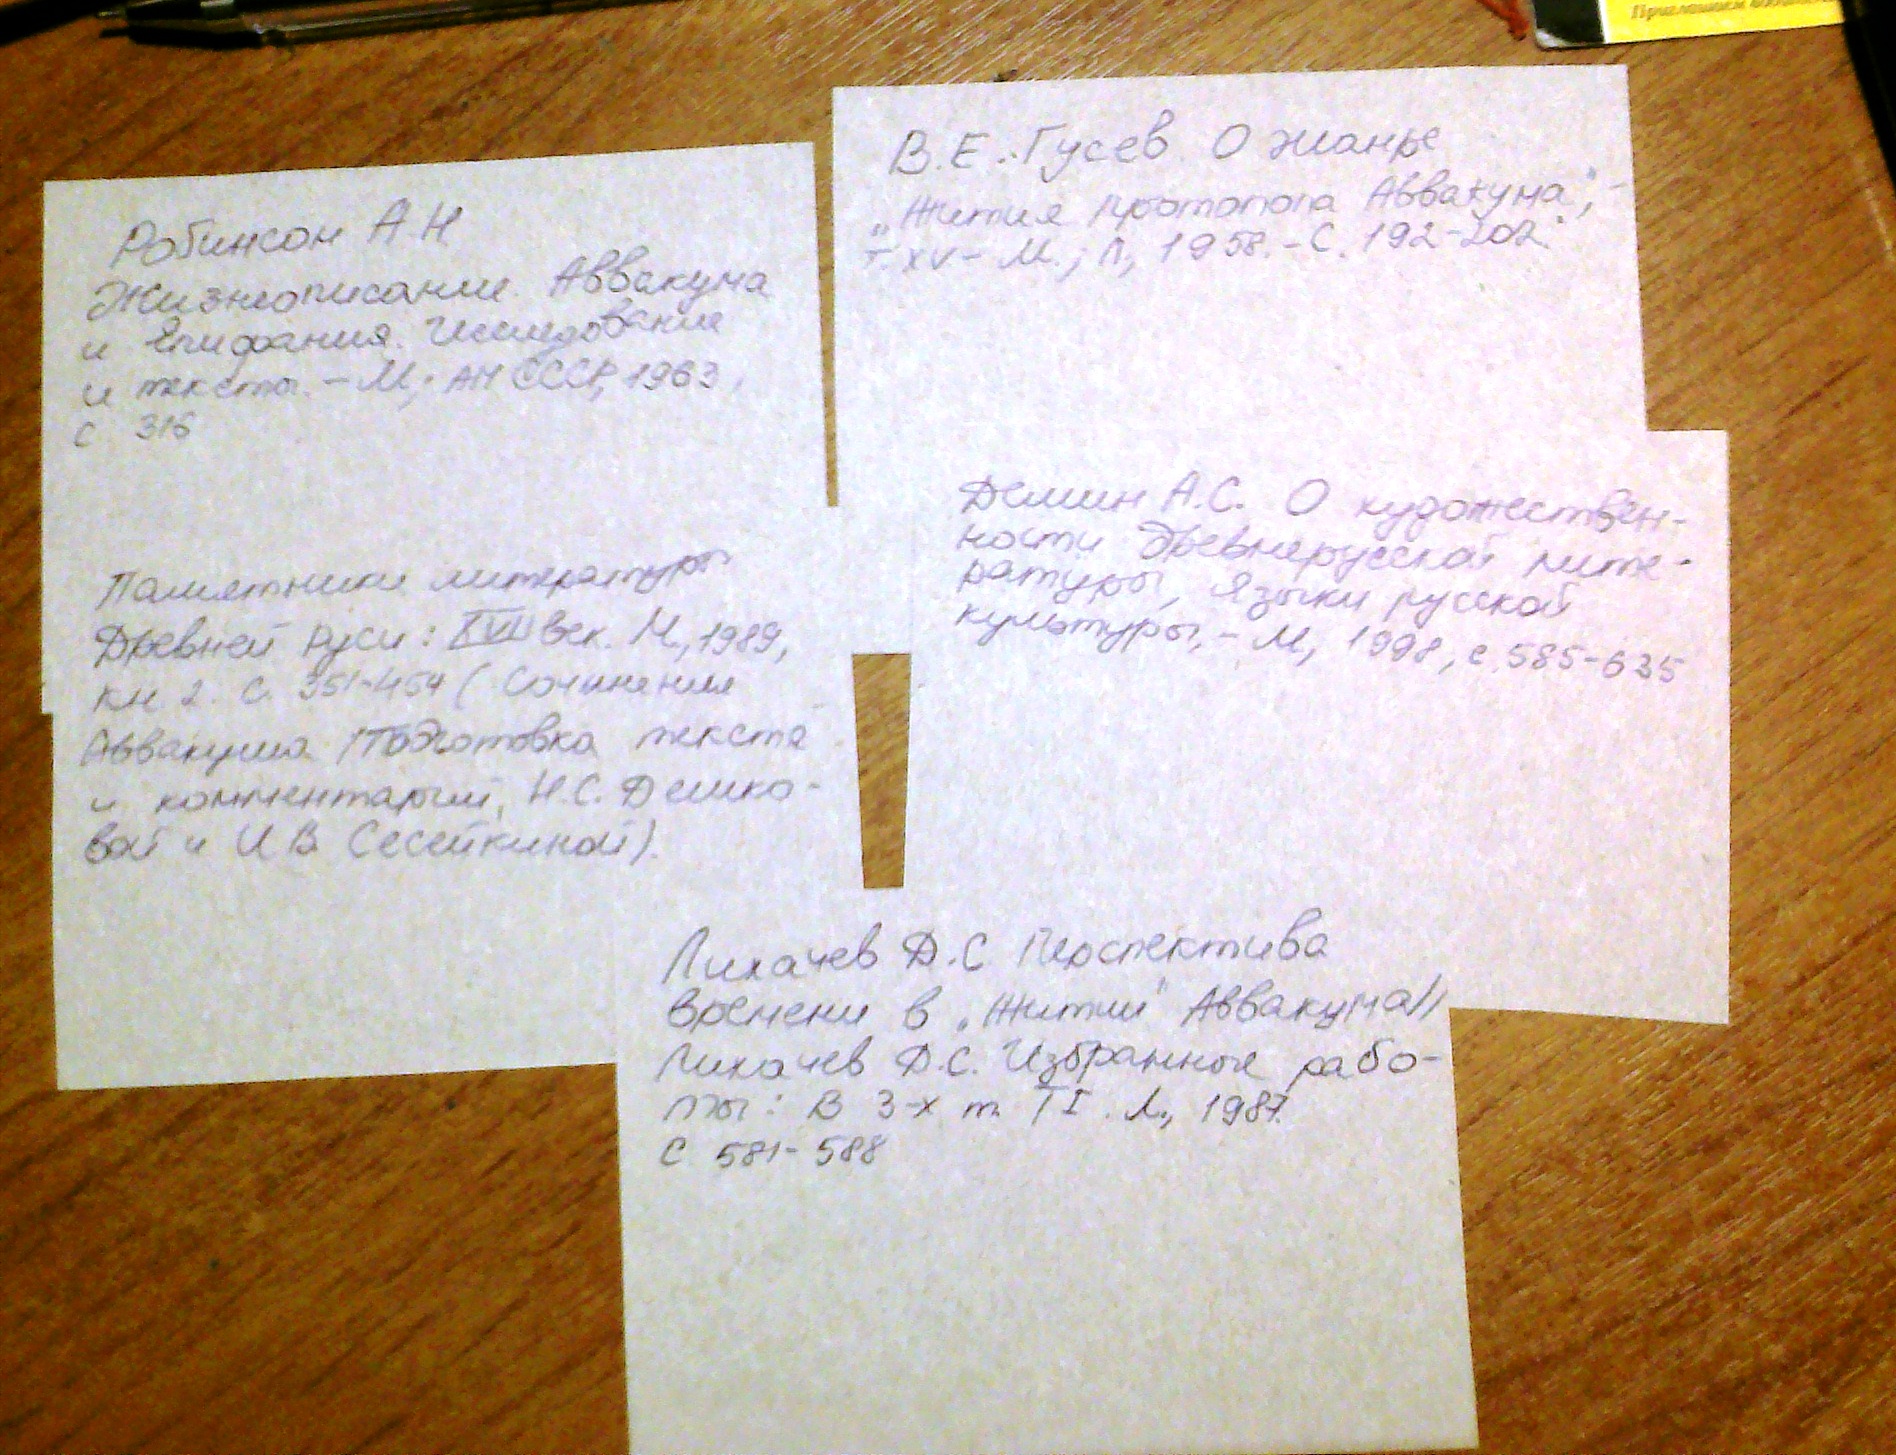 Робинсон А.Н
Жизнеописание Аввакума
и Епифания. Исследование
и тексты. – М.; АН СССР, 1963,
с 316
Памятники литературы
Древней Руси: XVII век. М., 1989,
кн 2. С. 351-454 ( Сочинения
Аввакума /Подготовка текста
и комментарии, Н.С. Демко-
вой и И В Сесейкиной).
В.Е. Гусев. О жанре
„Жития протопопа Аввакума", –
Т. XV – М.; Л, 1958. – С. 192-202.
Демин А.С. О художествен-
ности Древнерусской лите-
ратуры, Языки русской
культуры, – М, 1998, с. 585-635
Лихачев Д.С Перспектива
времени в „Житии" Аввакума//
Лихачев Д.С. Избранные рабо-
ты: В 3-х т. Т I. Л., 1987.
С 581-588